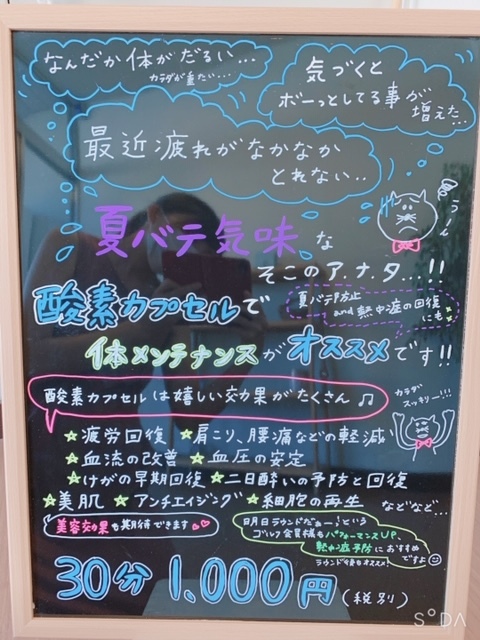 なんだか体がだるい...
カラダが重たい...
気づくと
ボーっとしてる事が
増えた...
最近疲れがなかなか
とれない..
うーん
夏バテ気味な
そこのア.ナ.タ...!!
酸素カプセルで
夏バテ防止
and 熱中症の回復
にも
体メンテナンスがオススメです!!
酸素カプセルは嬉しい効果がたくさん♫
カラダ
スッキリー!!!
☆疲労回復 ☆肩こり、腰痛などの軽減
☆血流の改善 ☆血圧の安定
☆けがの早期回復 ☆二日酔いの予防と回復
☆美肌 ☆アンチエイジング ☆細胞の再生 などなど...
美容効果も期待できます♡♡
明日ラウンドだぁー!という
ゴルフ会員様もパフォーマンスUP、
熱中症予防におすすめ
ですよ☺
ラウンド後もオススメ!
30分 1,000円(税別)
SODA